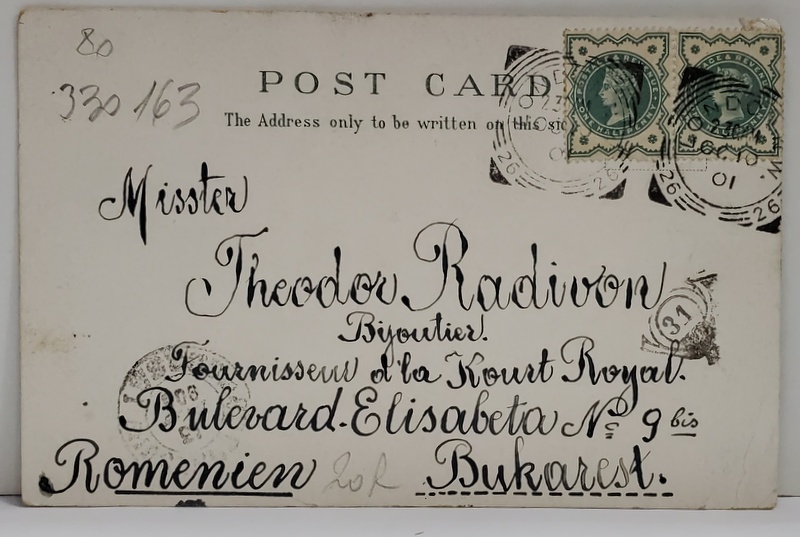 80
330 163
POST CARD
The Address only to be written on this sid
POSTAGE & REVENUE
ONE HALFPENNY
LONDON
OC 10
01
26
26
Misster
Theodor Radivon
Bijoutier.
31
Fournisseur d la Kourt Royal.
Bulevard. Elisabeta Nº 9 bis
Romenien Bukarest.